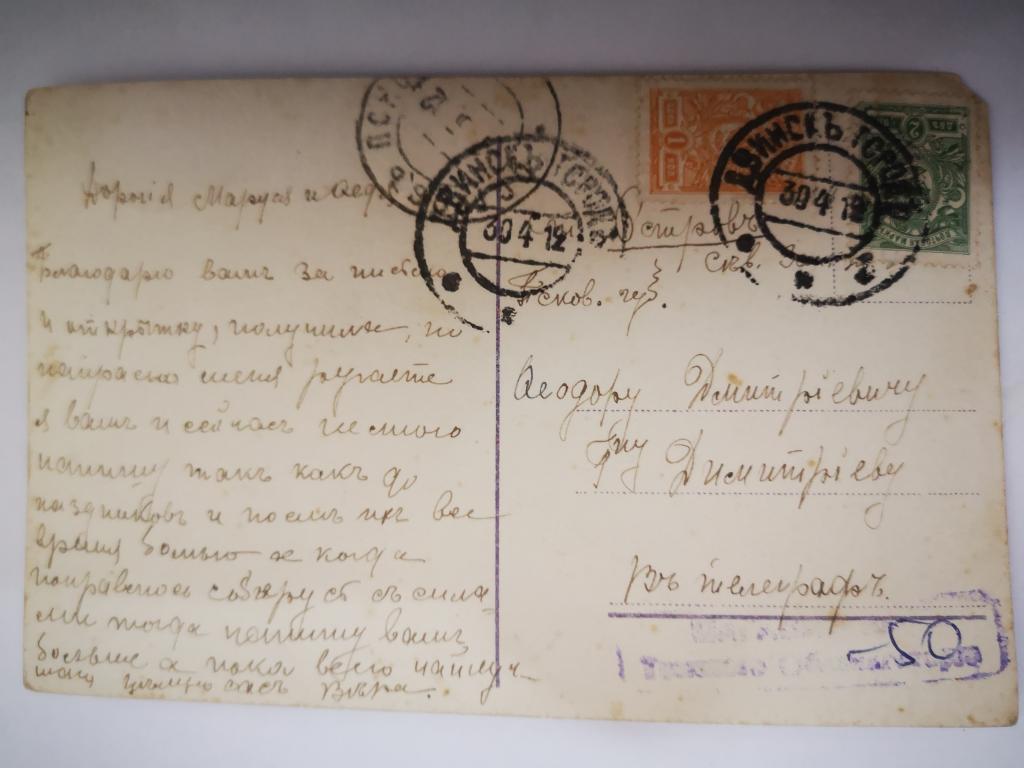 Дорогія Маруся и Ѳед
Благодарю вамъ за письмо
и открытку, получила, но
напрасно меня ругаете
я вамъ и сейчасъ немного
напишу такъ какъ до
праздниковъ и послѣ ихъ все
время болью а когда
поправлюсь соберусь съ сила-
ми тогда напишу вамъ
больше а пока всего наилуч-
шаго Вѣра.
ПСКОВ
ДВИНСКЪ
30 4 12
ДВИНСКЪ
30 4 12
1
2
Островъ
Псков. гу
Ѳеодору Дмитріевичу
Гну Димитріеву
Въ телеграфъ.
-50